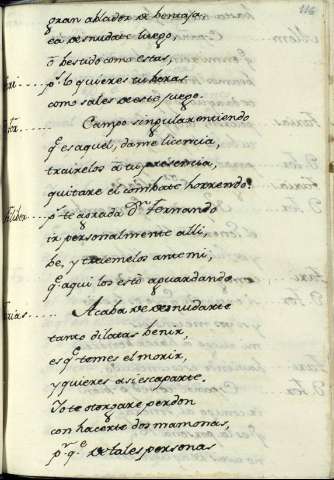 116
gran ablador de bentaja
ea desnudate luego,
ô bestido como estas,
pr. lo quieres tu beras
como sales de este juego.
Campo singular entiendo
q. es aquel, dame licencia,
traireios â tu presencia,
quitare el combate horrendo.
pr. te agrada Dn. Fernando
ir personalmente alli,
be, y traemelos ante mi,
q. aqui los estô aguardando
Acaba de desnudarte
tanto dilatas benir,
es q. temes el morir,
y quieres asi escaparte.
Yo te otorgare perdon
con hacerte dos mamonas,
pr. qe. de tales personas